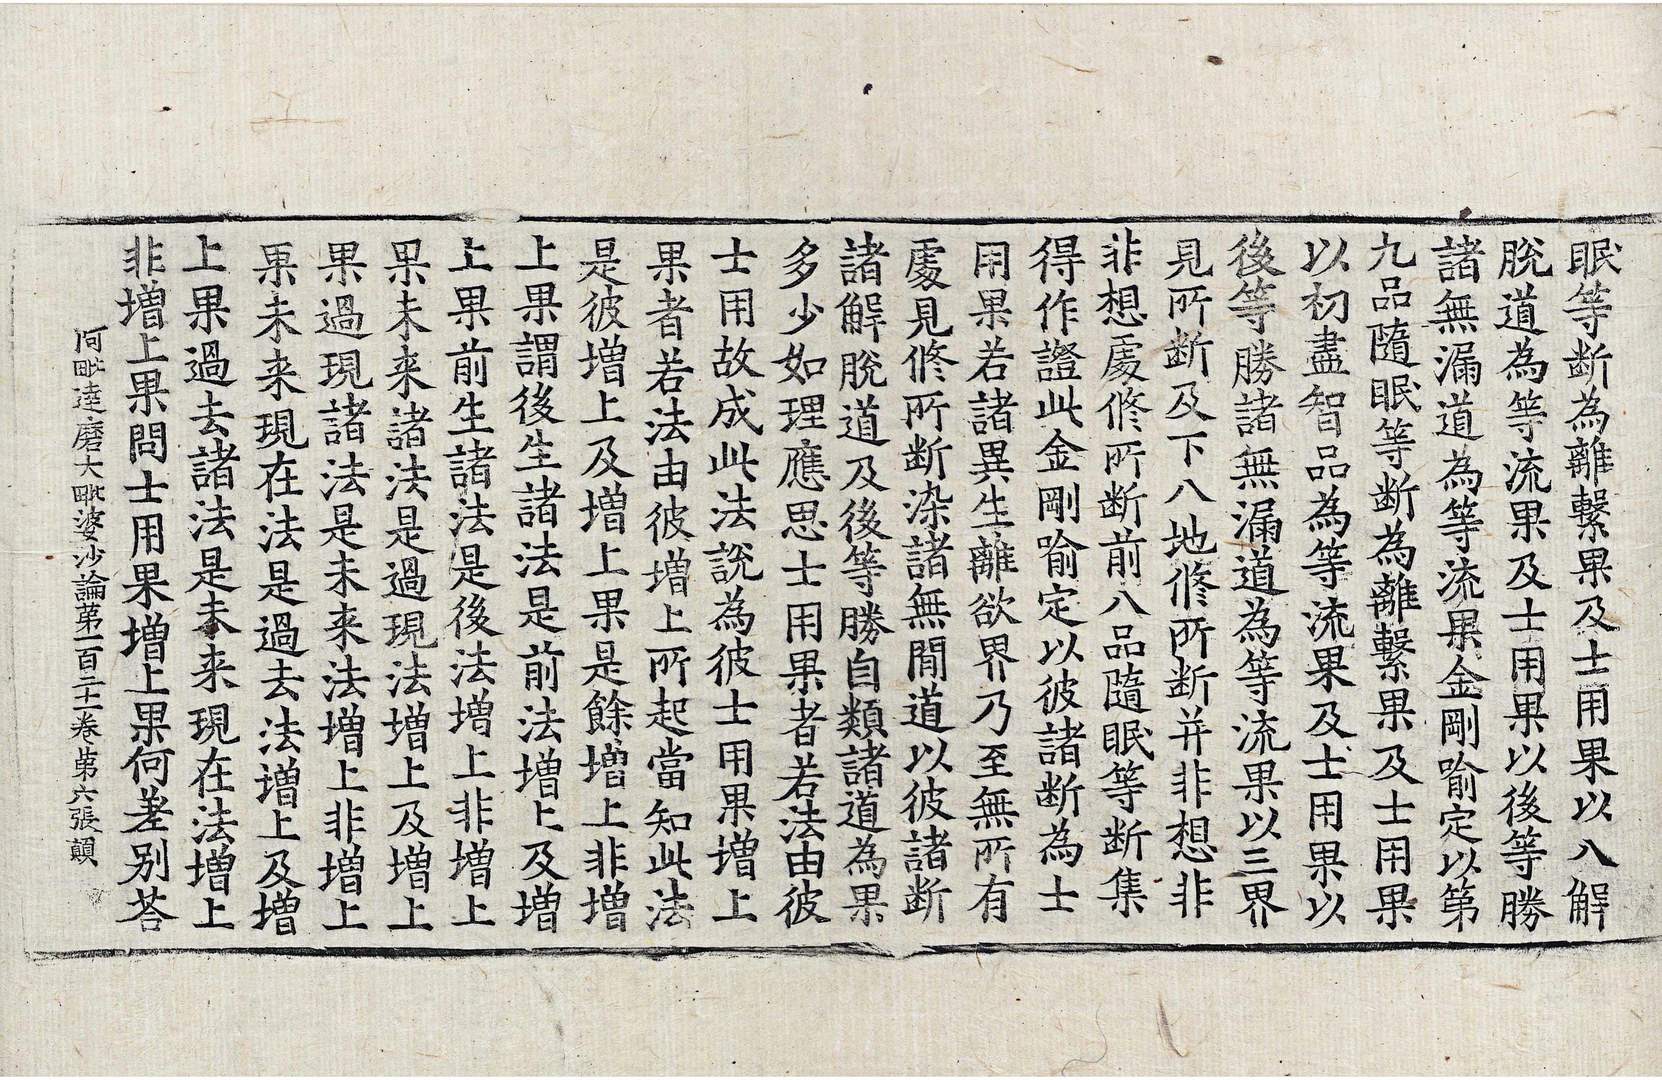 眠等断為離繫果及士用果以八解
脫道為等流果及士用果以後等勝
諸無漏道為等流果金剛喻定以第
九品隨眠等断為離繫果及士用果
以初盡智品為等流果及士用果以
後等勝諸無漏道為等流果以三界
見所断及下八地修所断并非想非
非想處修所断前八品隨眠等断集
得作證此金剛喻定以彼諸断為士
用果若諸異生離欲界乃至無所有
處見修所断染諸無間道以彼諸断
諸解脫道及後等勝自類諸道為果
多少如理應思士用果者若法由彼
士用故成此法說為彼士用果增上
果者若法由彼增上所起當知此法
是彼增上及增上果是餘增上非增
上果謂後生諸法是前法增上及增
上果前生諸法是後法增上非增上
果未来諸法是過現法增上及增上
果過現諸法是未来法增上非增上
果未来現在法是過去法增上及增
上果過去諸法是未来現在法增上
非增上果問士用果增上果何差别荅
阿毗達磨大毗婆沙論第一百二十一卷第六張顛